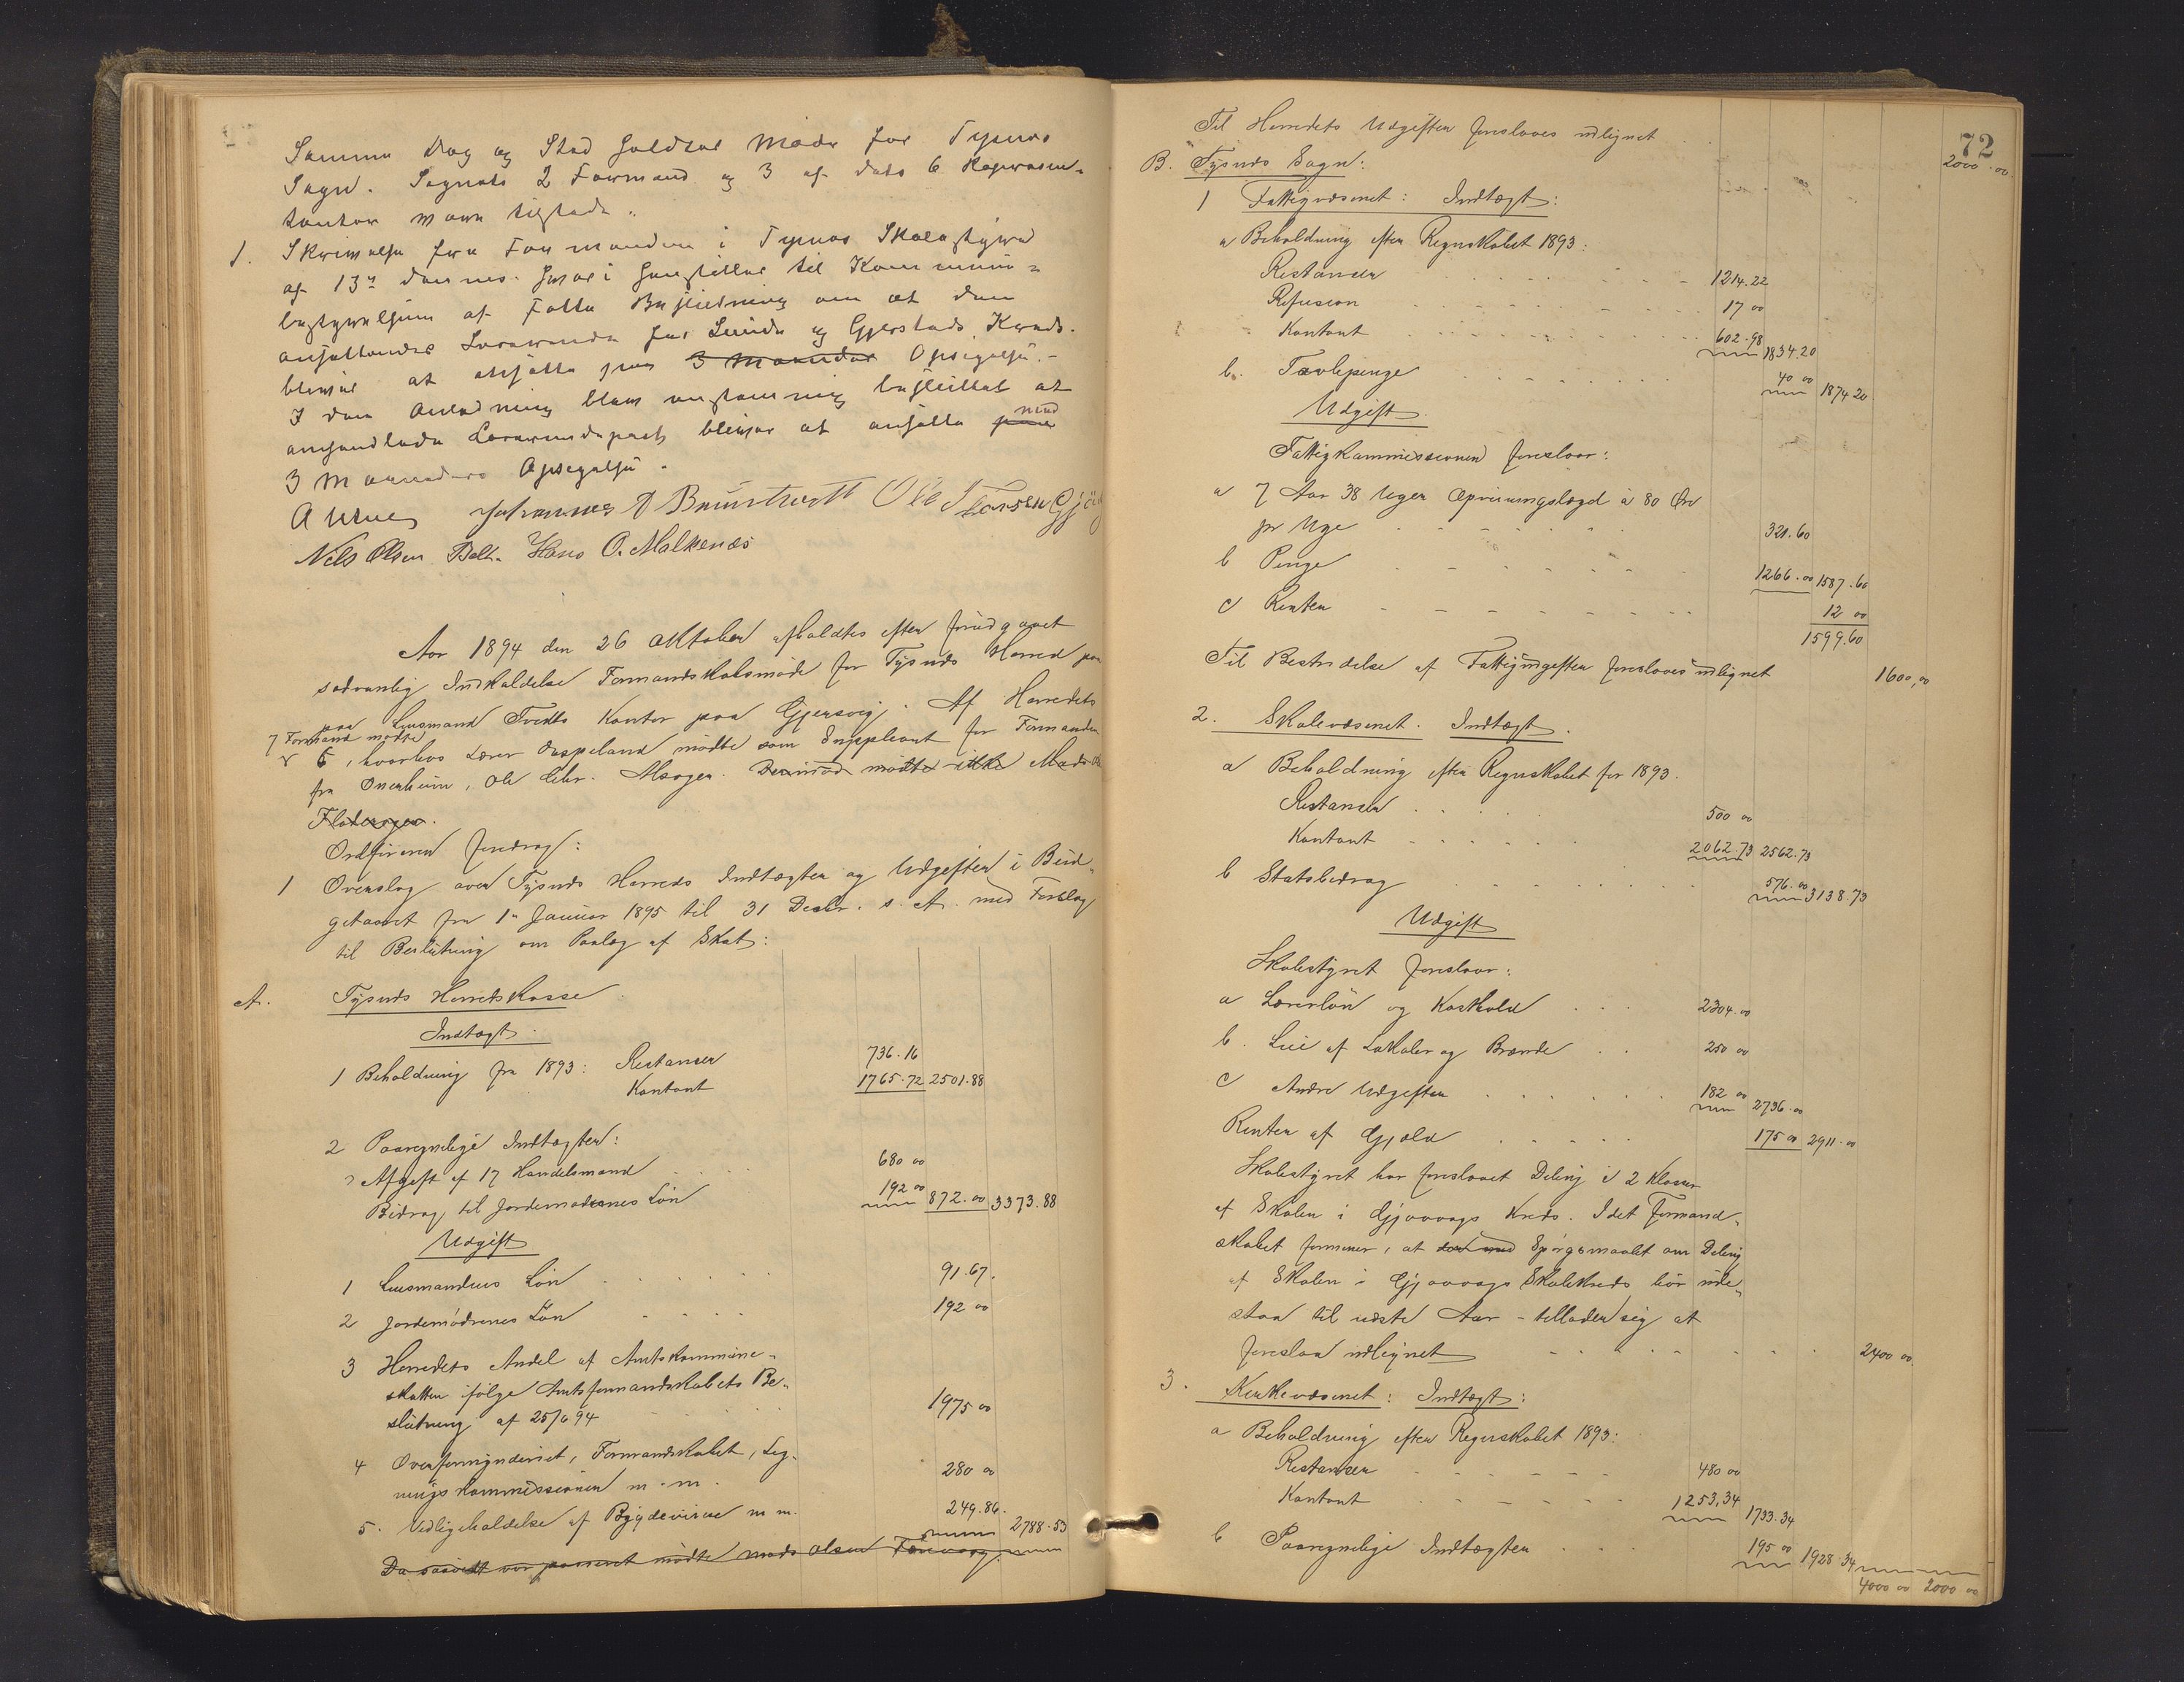 Samme Dag og Sted holdtes Møde for Tysnes
Sogn. Sognets 2 Formænd og 3 af dets 6 Repræsen-
tanter vare tilstede.
1. Skrivelse fra Formanden i Tysnes Skolestyre
af 13de dennes. hvori henstilles til Kommune-
bestyrelsen at fatte Beslutning om at den
ansættendes Lærerinde for Lunde og Gjerstads Kreds.
bliver at ansætte paa 3 Maaneders Opsigelse.-
I den Anledning blev enstemmig besluttet at
omhandlede Lærerindepost bliver at ansætte paa med
3 Maaneders Opsigelse.
Johannes Ole Larsen
Nils Olsen Hans O. Malkenes
Aar 1894 den 26 Oktober afholdtes efter forudgaaet
sedvanlig Indkaldelse Formandskabsmøde for Tysnes Herred paa
paa Lensmand Tvedts Kontor paa Gjersvig. Af Herredets
7 Formænd mødte
6, hvorhos Lærer Duspeland mødte som Suppleant for Formanden
fra Onerheim, Ole Chr. Derimod mødte ikke Mads
Ordføreren foredrog:
1 Overslag over Tysnes Herreds Indtægter og Udgifter i Bud-
getaaret fra 1ste Januar 1895 til 31 Decbr. s. A. med Forslag
til Beslutning om Paalæg af Skat:
A. Tysnes Herredskasse
Indtægt.
1 Beholdning fra 1893: Restanser 736.16
Kontant 1765.72 2501.88
2 Paaregnelige Indtægter:
Afgift af 17 Handelsmænd 680 00
Bidrag til Jordemødrenes Løn 192 00 872.00 3373.88
Udgift
1 Lensmandens Løn 91.67.
2 Jordemødrenes Løn 192 00
3 Herredets Andel af Amtskommune-
skatten ifølge Amtsformandskabets Be-
slutning af 25/6 94 1975 00
4 Overformynderiet, Formandskabet, Lig-
ningskommissionen m. m. 280 00
5. Vedligeholdelse af Bygdeveiene m m. 249.86. 2788.53
Da saavidt var passeret mødte Mads Olsen
72
Til Herredets Udgifter foreslaaes udlignet 2000.00.
B. Tysnes Sogn:
1 Fattigvæsenet: Indtægt:
a Beholdning efter Regnskabet 1893:
Restanser 1214.22
Refusion 17 00
Kontant 602.98 1834.20
b. Tavlepenge 40 00 1874 20
Udgift.
Fattigkommissionen foreslaar:
a 7 Aar 38 Uger Opfostringslægd à 80 Øre
pr Uge 321.60
b Penge 1266.00 1587.60
c Renter 12 00
1599.60
Til Bestridelse af Fattigudgifter foreslaaes udlignet 1600,00
2. Skolevæsenet. Indtægt.
a Beholdning efter Regnskabet for 1893.
Restanser 500 00
Kontant 2062.73 2562.73
b Statsbidrag 576.00 3138.73
Udgift
Skolestyret foreslaar:
a Lærerløn og Kosthold 2304.00
b. Leie af Lokaler og Brænde 250 00
c Andre Udgifter 182 00 2736.00
Renter af Gjæld 175 00 2911.00
Skolestyret har foreslaaet Deling i 2 Klasser
af Skolen i Gjøvaags Kreds. Idet Formand-
skabet formener, at Spørgsmaalet om Deling
af Skolen i Gjøvaags Skolekreds bør ude-
staa til næste Aar - tillader sig at
foreslaa udlignet 2400 00.
3. Kirkevæsenet: Indtægt:
a Beholdning efter Regnskabet 1893:
Restanser 480 00
Kontant 1253,34 1733.34
b Paaregnelige Indtægter 195 00 1928.34
4000 00 2000 00